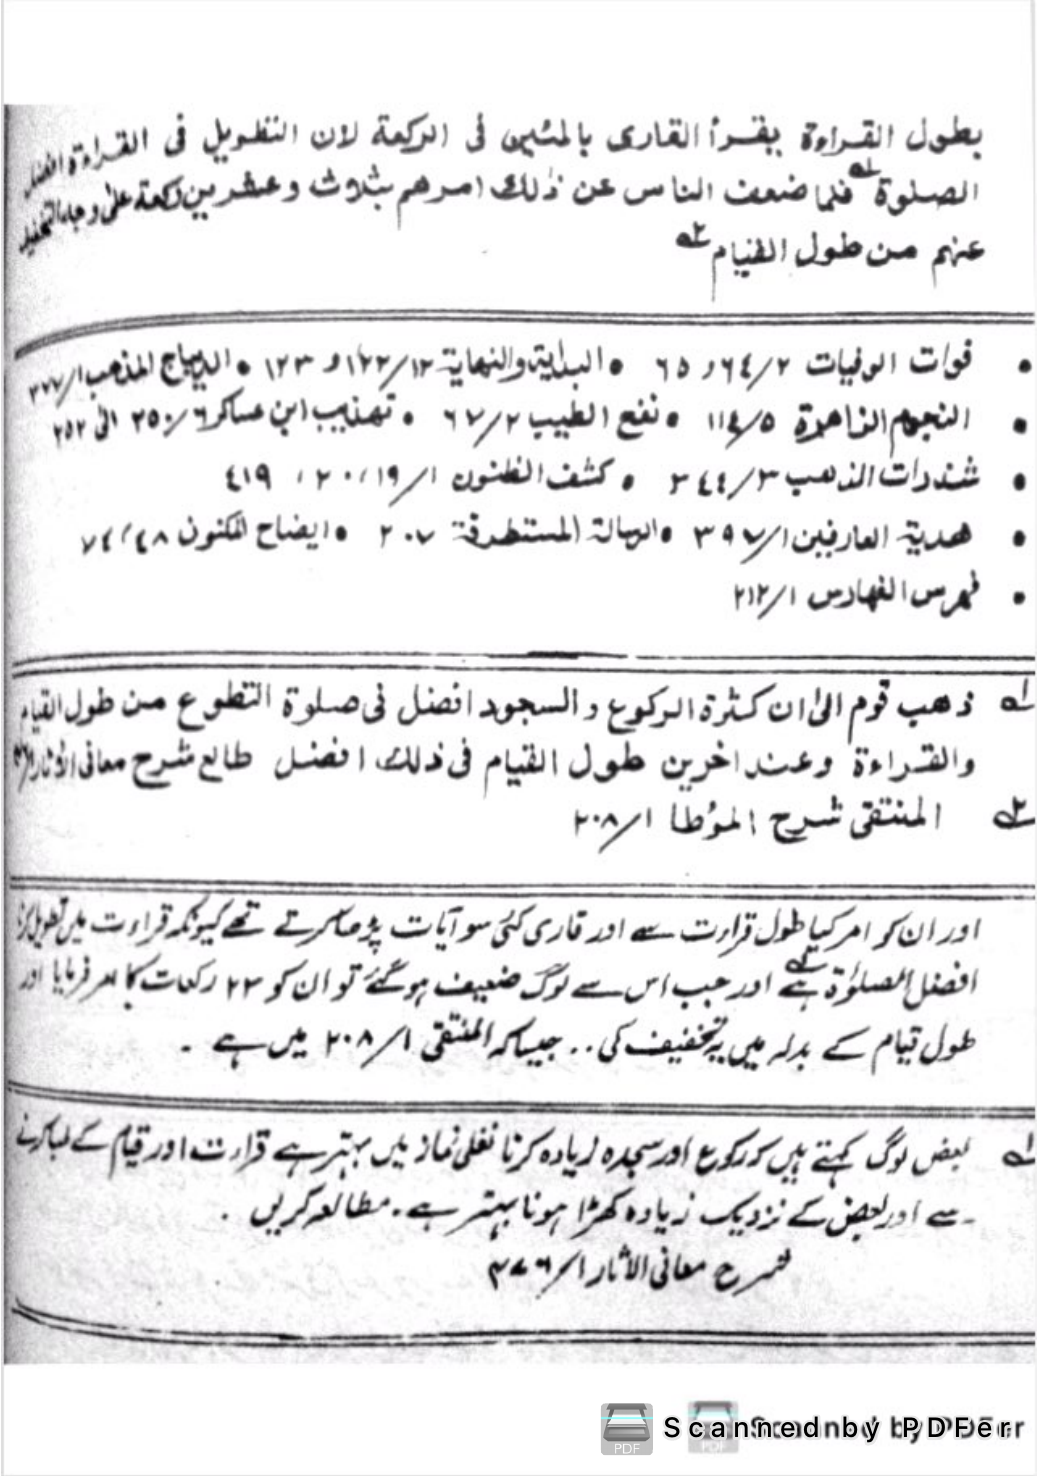 بطول القراءة يقرأ القارى بالمئين فى الركعة لان التطويل فى القراءة افضل
الصلوة ؁۱ فلما ضعف الناس عن ذٰلك امرهم بثلاث وعشرين ركعة على وجه التخفيف
عنهم من طول القيام ؁۲
• فوات الوفيات ۲/٦٤ و ٦٥ • البداية والنهاية ۱۲/۱۲۲ و ۱۲۳ • الديباج المذهب ۱/
• النجوم الزاهرة ۵/۱۱٤ • نفح الطيب ۲/٦٧ • تهذيب ابن عساكر ٦/۲۵۰ الى ۲۵۲
• شذرات الذهب ۳/۳٤٤ • كشف الظنون ۱/۱۹، ۲۰، ٤۱۹
• هدية العارفين ۱/۳۹۷ • الرسالة المستطرفة ۲۰۷ • ايضاح المكنون ٤۸/ ۷٤
• فهرس الفهارس ۱/۲۱۲
؁۱ ذهب قوم الىٰ ان كثرة الركوع والسجود افضل فى صلوة التطوع من طول القيام
والقراءة وعند اخرين طول القيام فى ذلك افضل طالع شرح معانى الاثار
؁۲ المنتقى شرح المؤطا ۱/۲۰۸
اور ان کو امر کیا طول قراءت سے اور قاری کئی سو آیات پڑھا کرتے تھے کیونکہ قراءت میں تطویل کرنا
افضل الصلوٰۃ ؁۱ ہے اور جب اس سے لوگ ضعیف ہوگئے تو ان کو ۲۳ رکعات کا امر فرمایا اور
طول قیام کے بدلہ میں یہ تخفیف کی .. جیساکہ المنتقی ۱/۲۰۸ میں ہے ۔
؁۱ بعض لوگ کہتے ہیں کہ رکوع اور سجدہ زیادہ کرنا نفلی نماز میں بہتر ہے قراءت اور قیام کے لمبا کرنے
سے اور بعض کے نزدیک زیادہ کھڑا ہونا بہتر ہے ۔ مطالعہ کریں ۔
شرح معانی الاثار ۱/
Scannedby PDFer